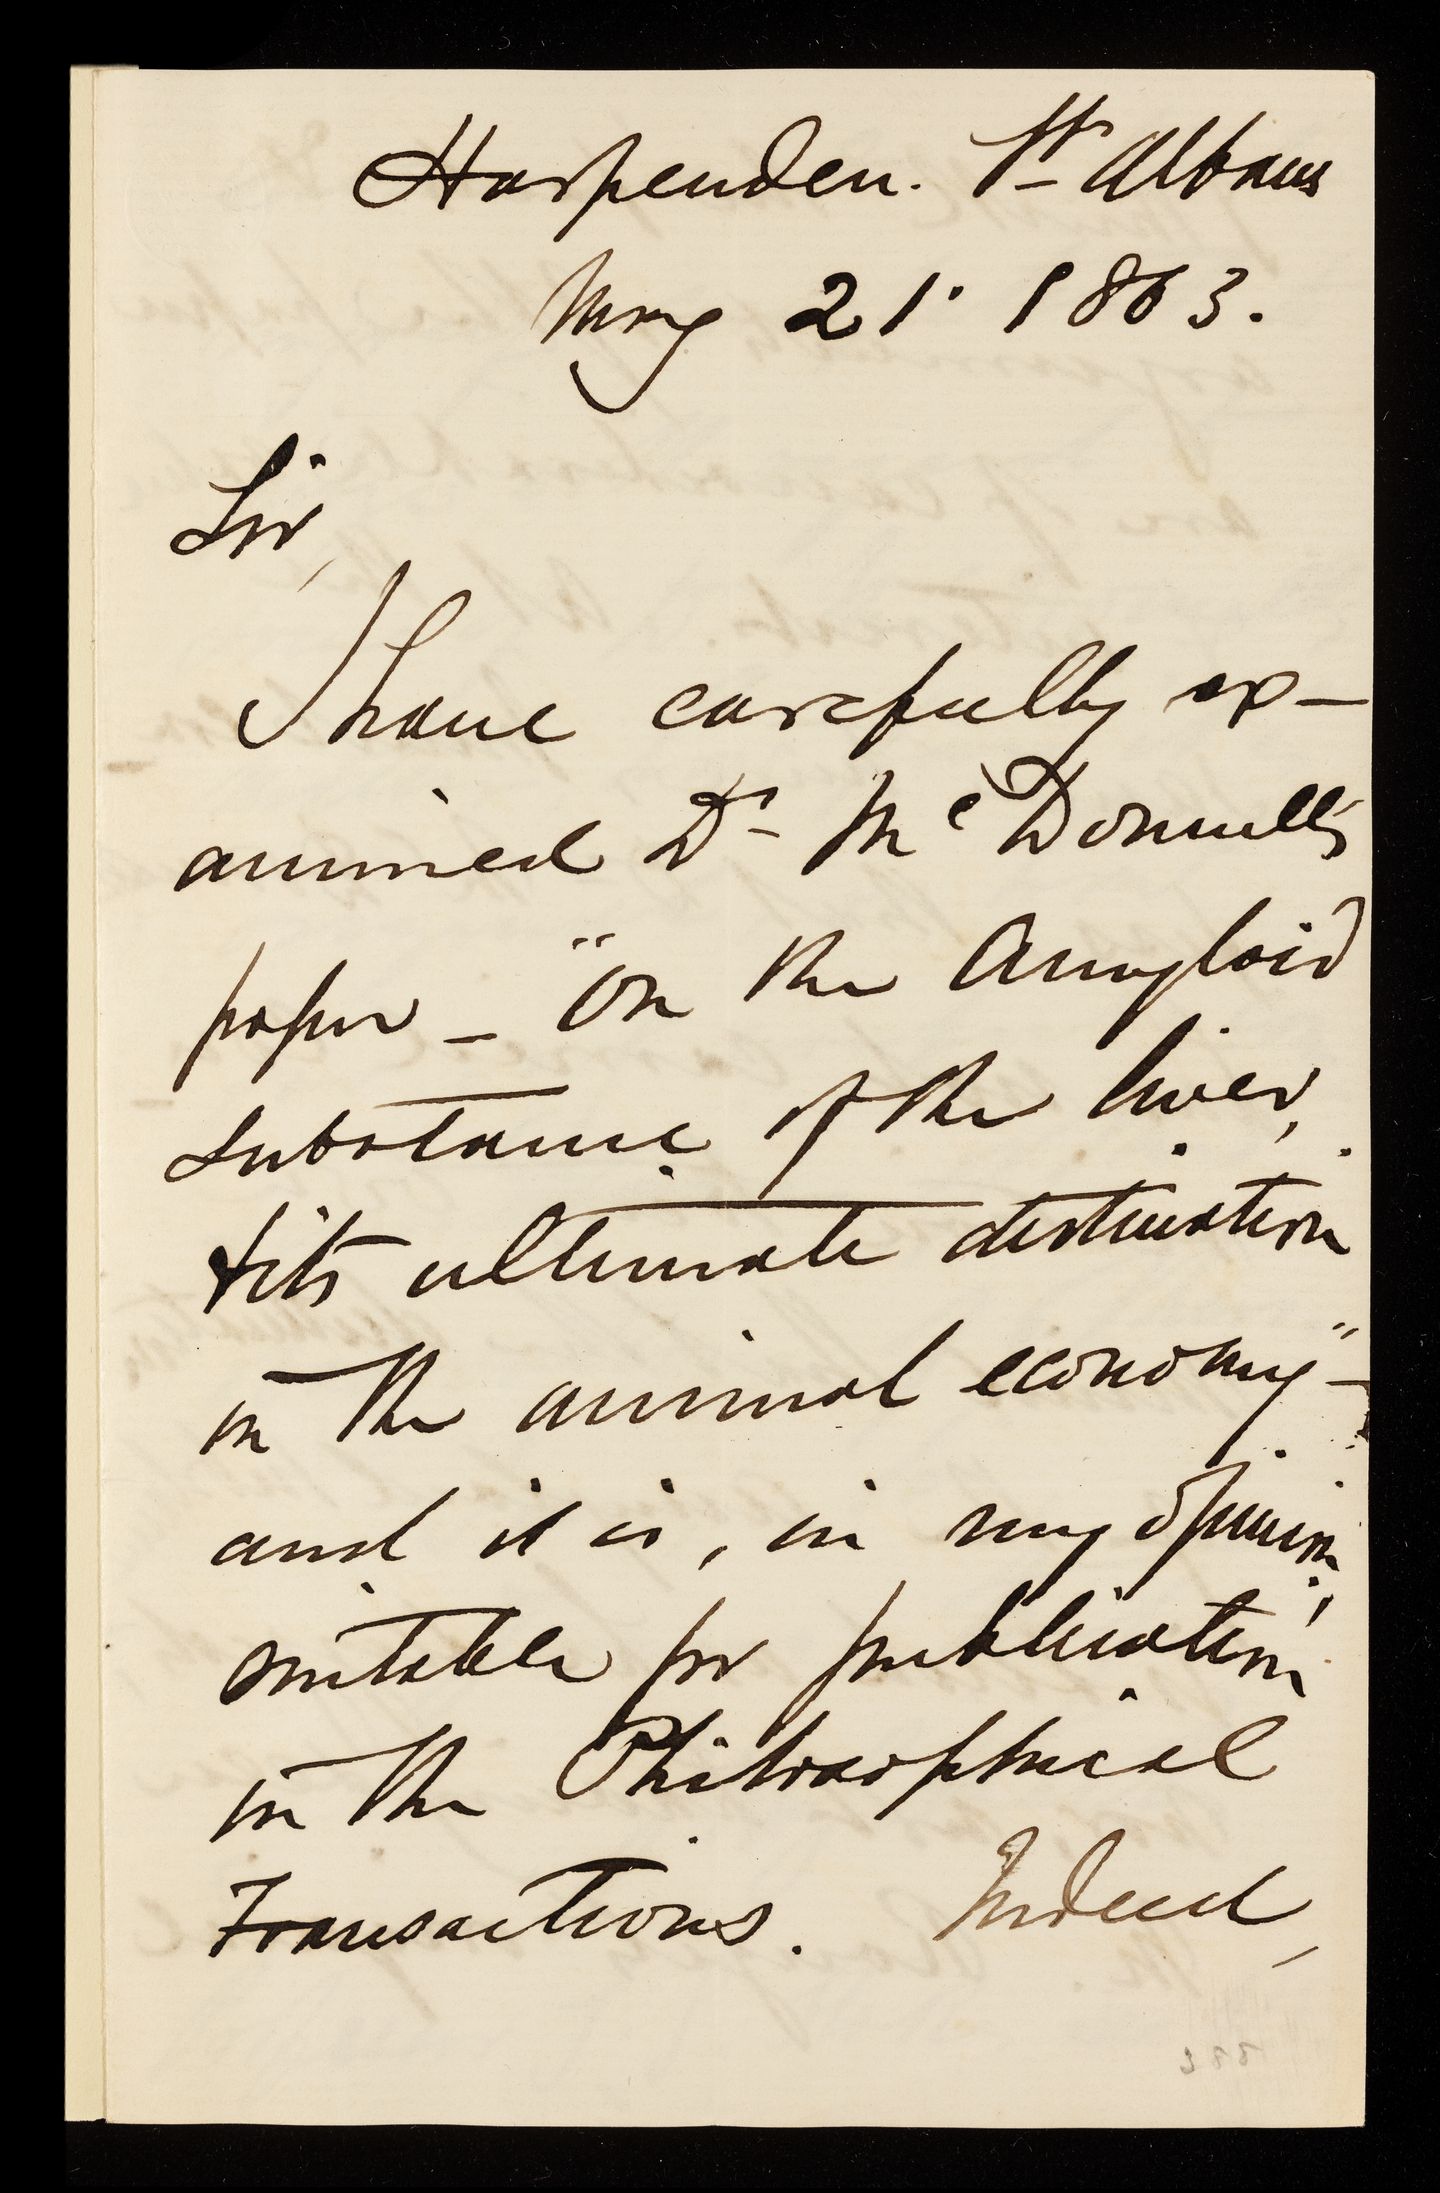 Harpenden. St Albans
May 21. 1863.
Sir,
I have carefully ex-
amined Dr McDonnell's
paper - "On the Amyloid
substance of the liver,
& its ultimate destination
in the animal economy" -
and it is, in my opinion,
suitable for publication
in the Philosophical
Transactions. Indeed,